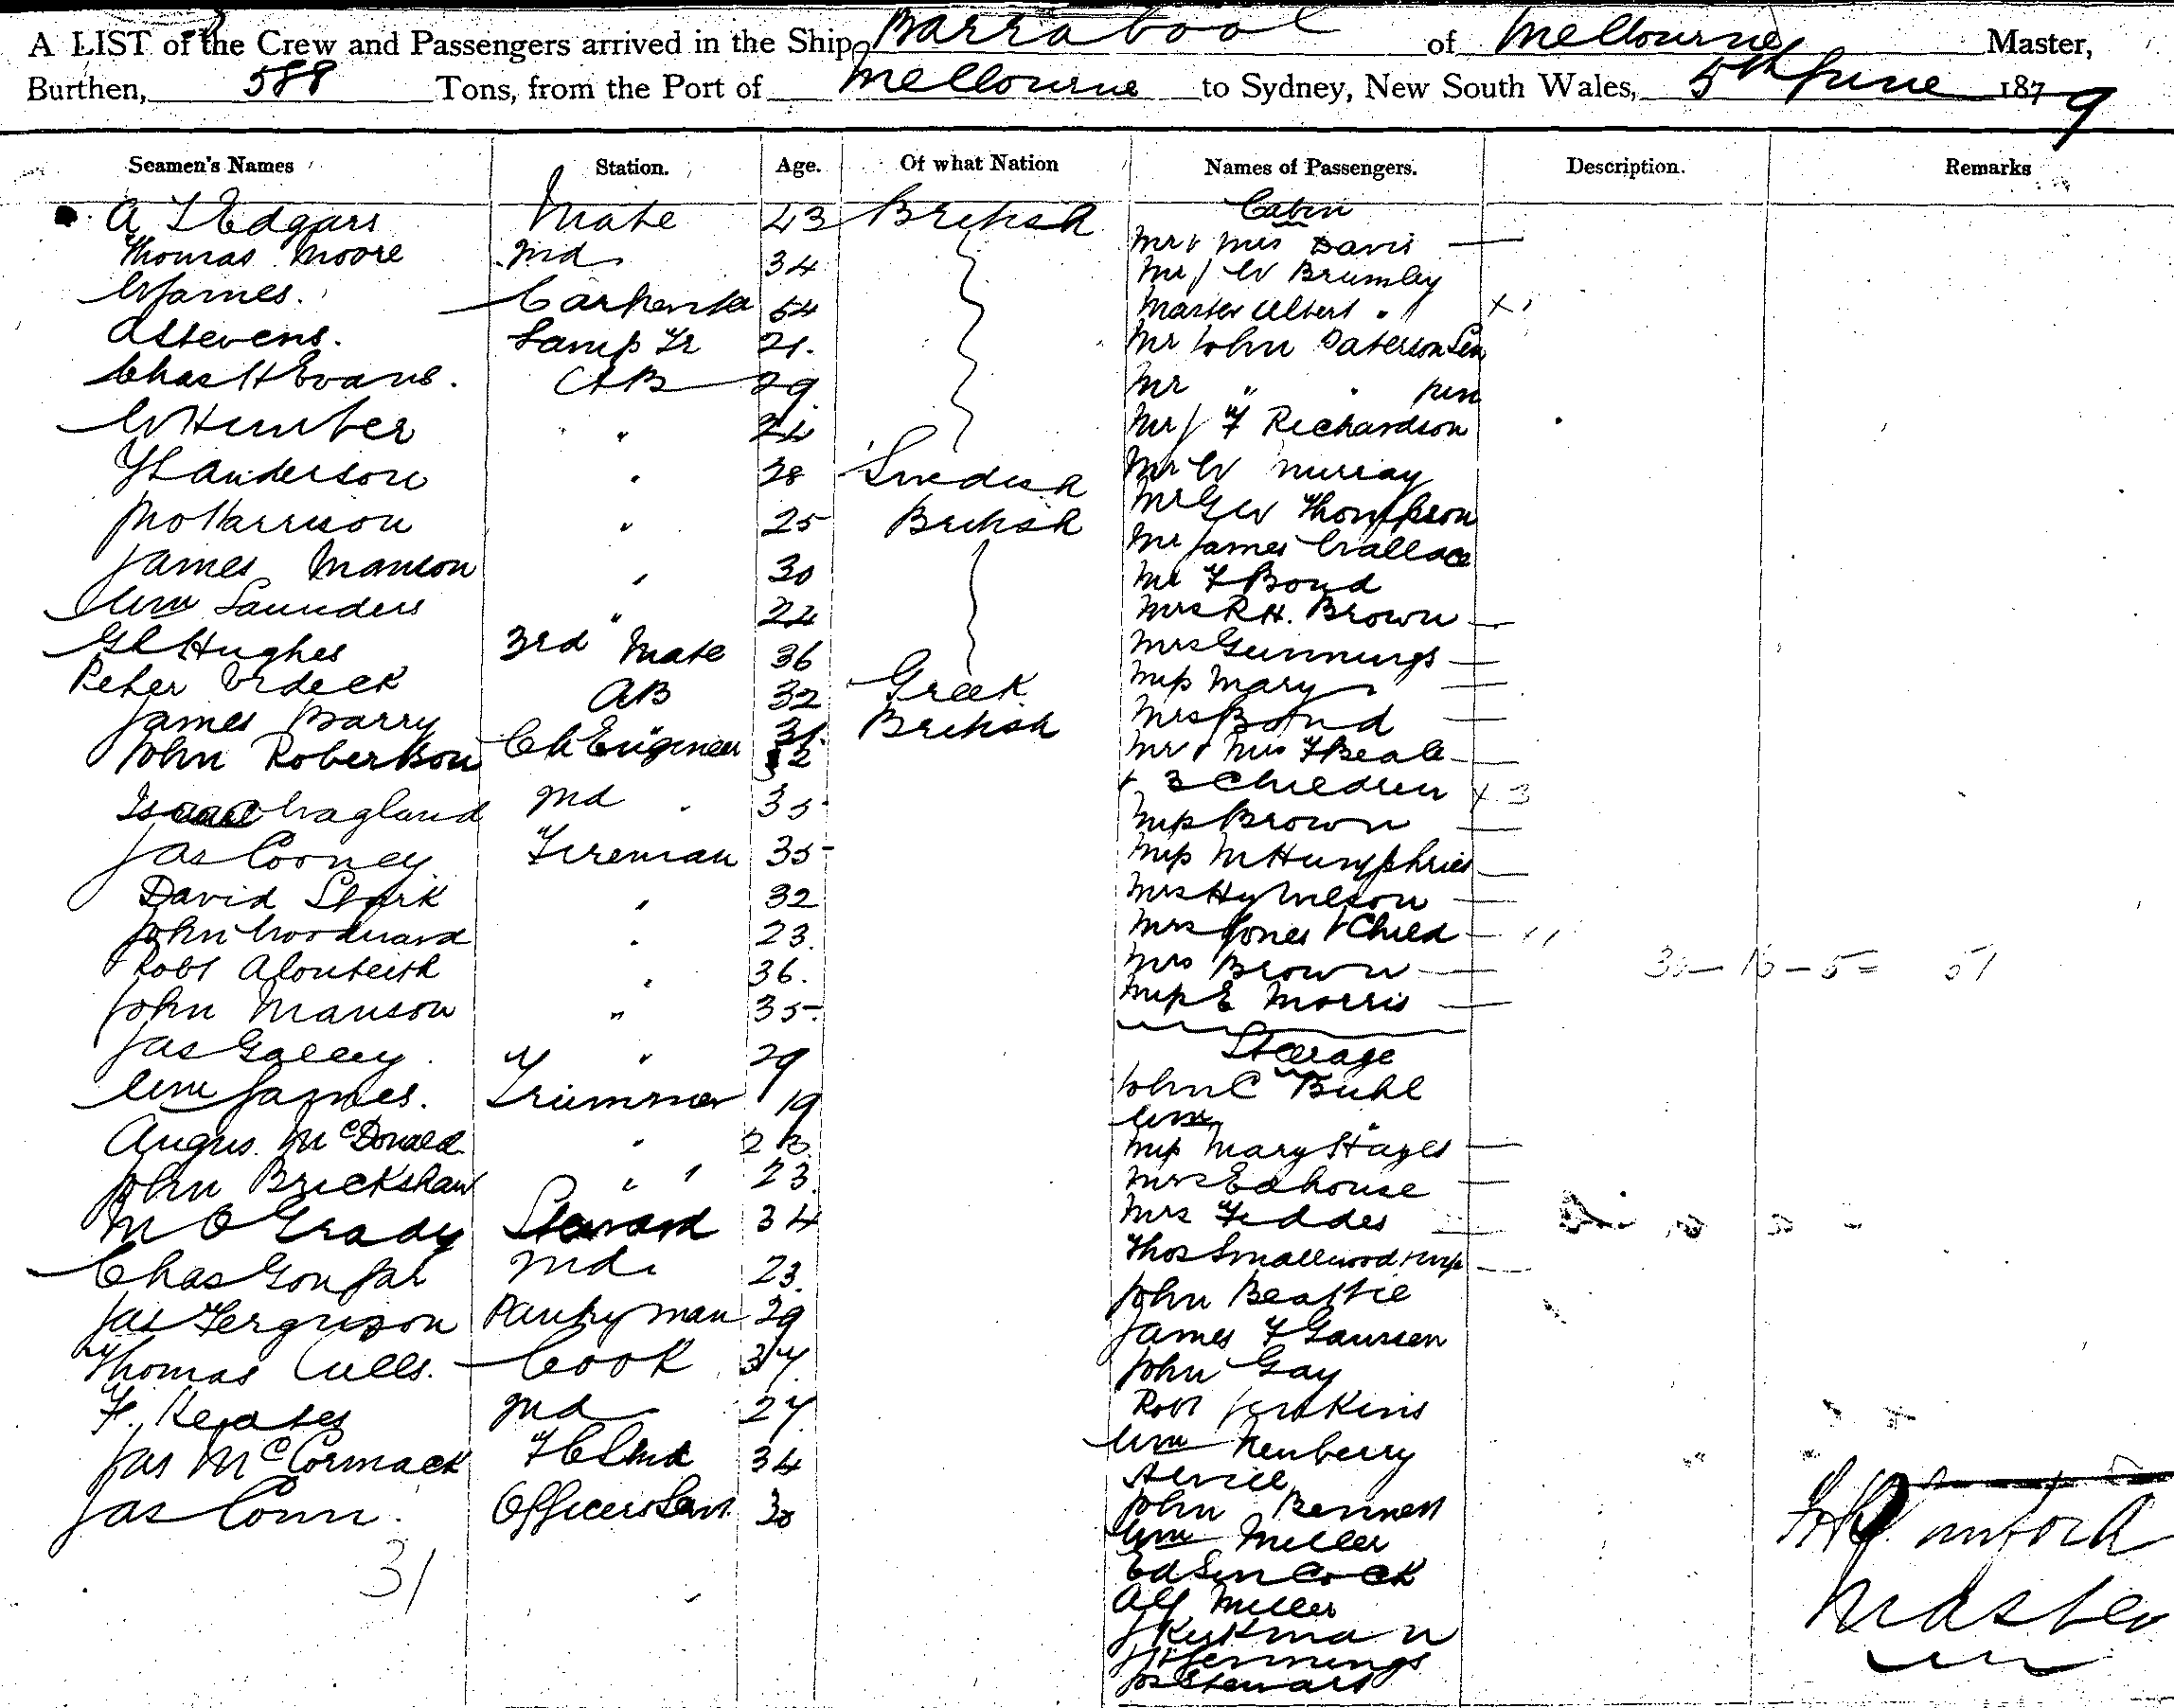 A LIST of the Crew and Passengers arrived in the Ship Barrabool of Melbourne Master,
Burthen, 588 Tons, from the Port of Melbourne to Sydney, New South Wales, 5th June 1879
Seamen's Names Station. Age. Of what Nation Names of Passengers. Description. Remarks
A T Edgars Mate 43 British Cabin
Thomas Moore 2nd 34 Mr & Mrs Davis —
W James. Carpenter 54 Mr J W Brumley
Master Albert "
A Stevens. Lamp Tr 21. Mr John Paterson Sen
Chas H Evans. AB 29. Mr " " jun
W Humber " 24 Mr J F Richardson
Anderson " 28 Swedish Mr W Murray
Jno Harrison " 25 British Mr G W Thompson
Mr James Wallace
James Manson " 30 Mr F Bond
Wm Saunders " 22 Mrs R H. Brown —
G L Hughes 3rd Mate 36 Mrs Gunnings —
Peter AB 32 Greek Miss Mary —
James Barry " 31. British Mrs Bond —
John Robertson Ch Engineer 52 Mr & Mrs F Beale —
& 3 Children x 3
Isaac Wagland 2nd " 35 Miss Brown —
Jas Cooney Fireman 35 Miss M Humphries —
David Stark " 32 Mrs Hy Wilson —
John Woodward " 23. Mrs Jones & Child —
Robt Monteith " 36. Mrs Brown —
John Manson " 35 Miss E Morris —
Jas Galley " 29 Steerage
Wm James. Trimmer 19 John C Buhl
Wm "
Angus McDonald " 23 Miss Mary Hayes —
John Brickshaw " " 23. Mrs Edhouse —
M O Grady Steward 34 Mrs Feddes
Chas 2nd 23. Thos Smallwood
John Beattie
Jas Ferguson Pantry man 29 James F
Thomas Cook 37. John Gay
F. Keates 2nd 27 Robt Jenkins
Wm Newberry
Jas McCormack 34
Jas Conn. Officers Servt. 30 John Bennett
Wm Miller
31
Ed Sincock
Alf Miller
J Kirkman
J H Jennings
Jas Stewart
Master